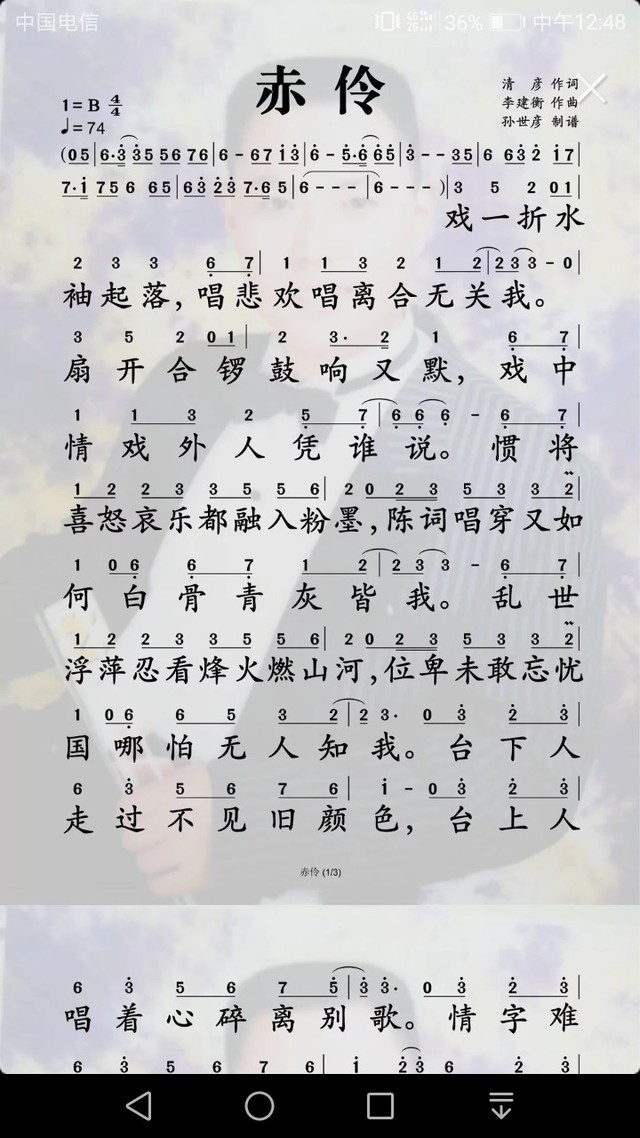 中国电信 36% 中午12:48
赤伶
清彦 作词
1=B 4/4
李建衡 作曲
♩=74
孙世彦 制谱
(05|6·3 35 56 76|6-67 i3|6-5·6 65|3--35|6 63 2 i7|
7·i 756 65|63 23 7·6 5|6---|6---)|3 5 2 01|
戏一折水
2 3 3 6 7|1 1 3 2 1 2|2 3 3-0|
袖起落，唱悲欢唱离合无关我。
3 5 2 01|2 3· 2 1 6 7|
扇开合锣鼓响又默，戏中
1 1 3 2 5 7|6 6 6 - 6 7|
情戏外人凭谁说。惯将
1 2 2 3 3 5 5 6|2 0 2 3 5 3 3 2|
喜怒哀乐都融入粉墨，陈词唱穿又如
1 0 6 6 7 1 2|2 3 3 - 6 7|
何白骨青灰皆我。乱世
1 2 2 3 3 5 5 6|2 0 2 3 5 3 3 2|
浮萍忍看烽火燃山河，位卑未敢忘忧
1 0 6 6 5 3 2|2 3· 0 3 2 3|
国哪怕无人知我。台下人
6 3 5 6 7 6|i - 0 3 2 3|
走过不见旧颜色，台上人
赤伶 (1/3)
6 3 5 6 7 5|3 3· 0 3 2 3|
唱着心碎离别歌。情字难
6 3 5 6 7 6|i 2 3 6 2 3|